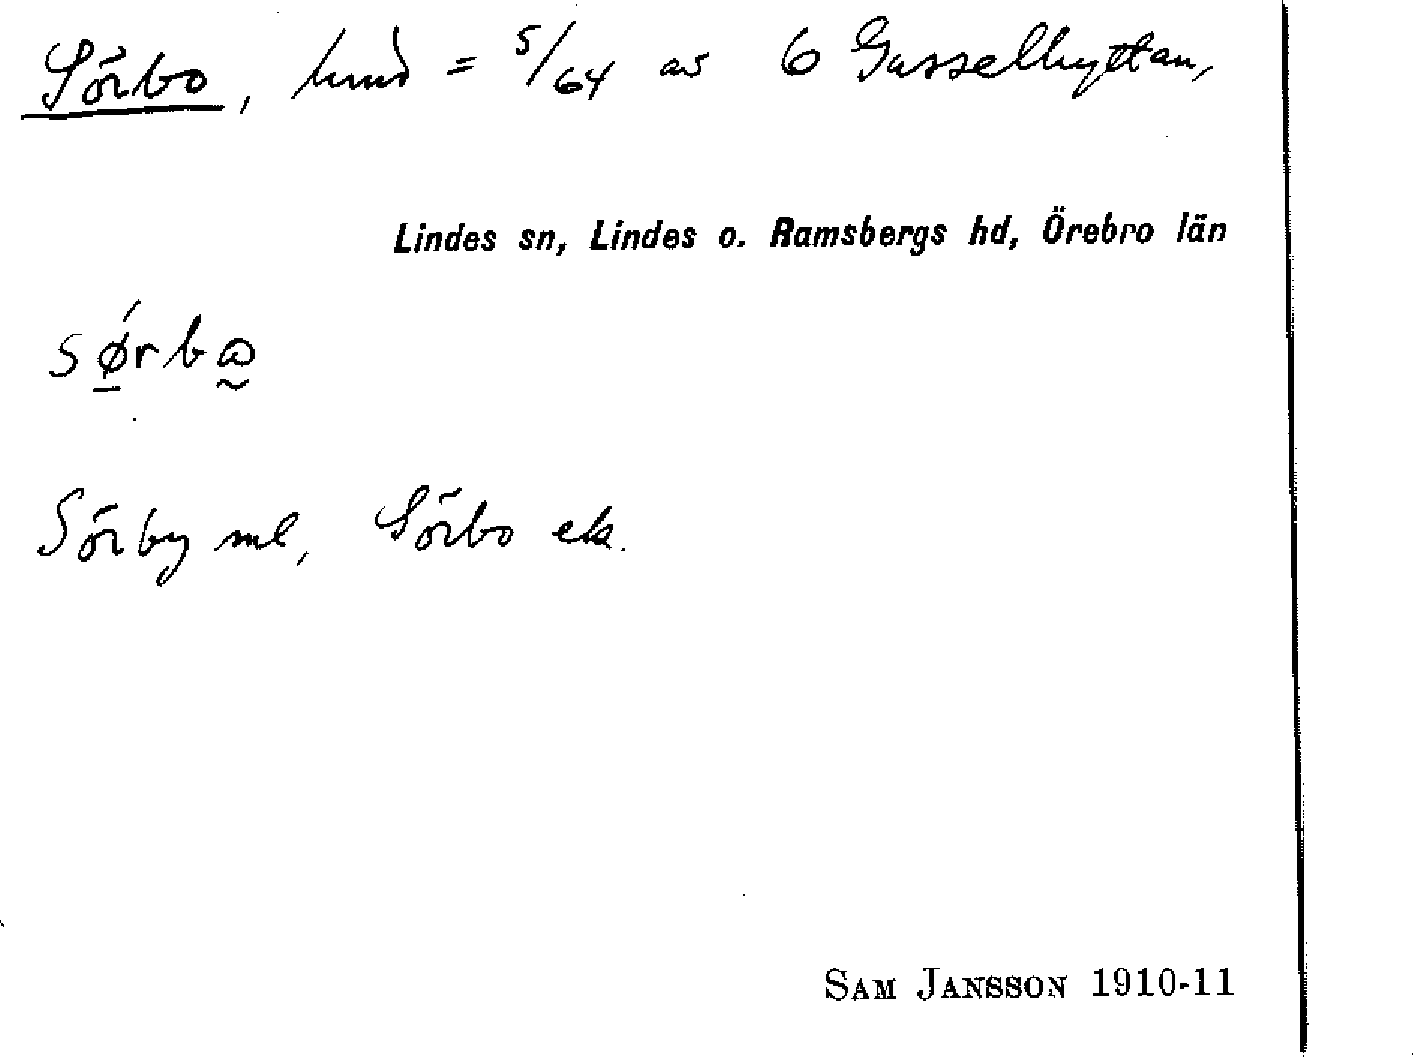 Sörbo, hmd = 5/64 av 6 Gusselhyttan,
Lindes sn, Lindes o. Ramsbergs hd, Örebro län
sǿrbɷ
Sörby ml, Sörbo ek.
SAM JANSSON 1910-11